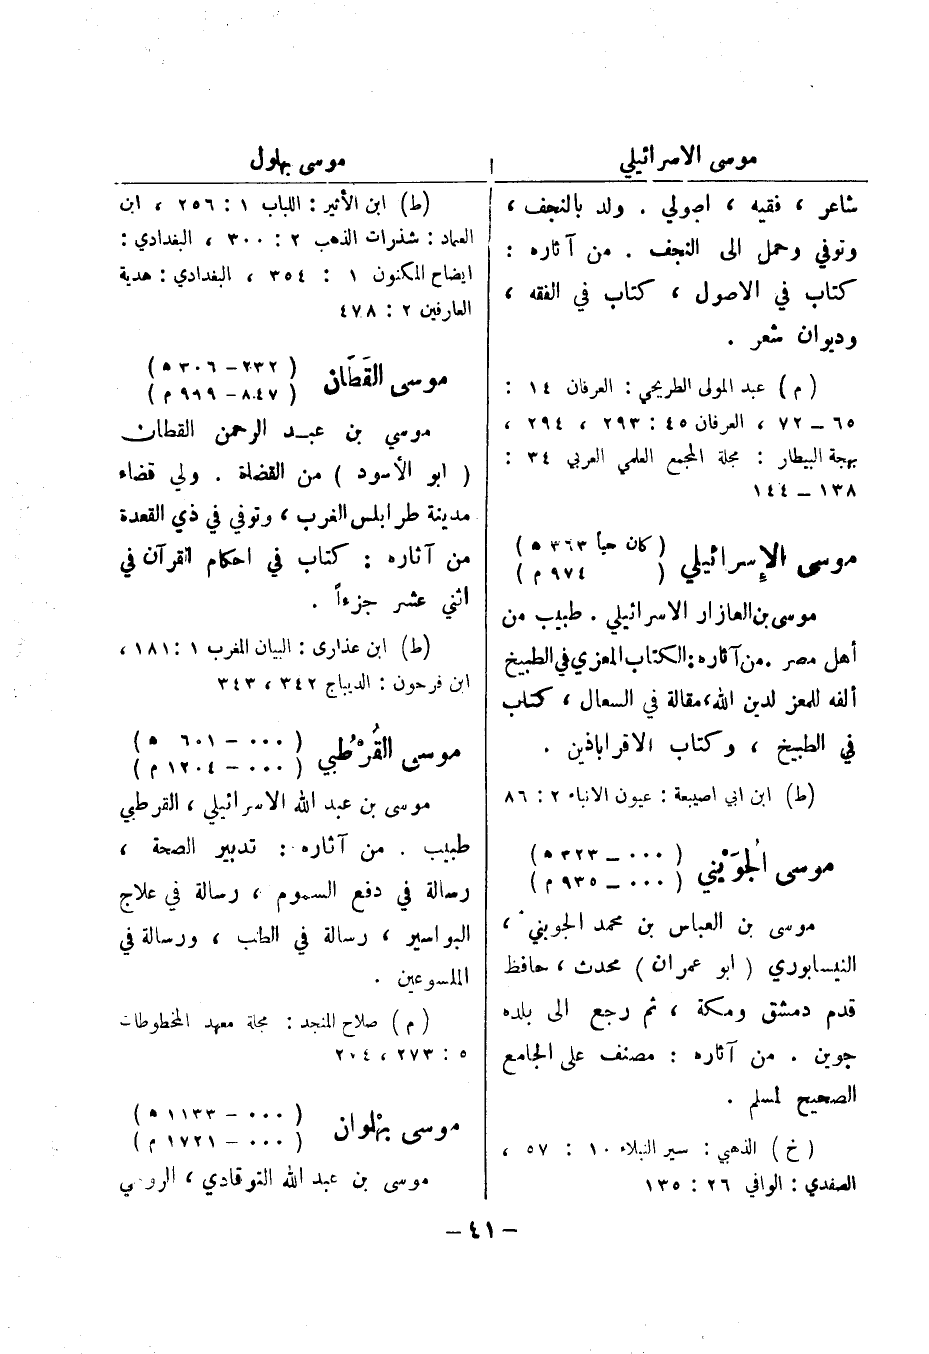 موسى الاسرائيلي
موسى بهلول
شاعر ، فقيه ، اصولي . ولد بالنجف ،
وتوفي وحمل الى النجف . من آثاره :
كتاب في الاصول ، كتاب في الفقه ،
وديوان شعر .
( م ) عبد المولى الطريحي : العرفان ١٤ :
٦٥ – ٧٢ ، العرفان ٤٥ : ٢٩٣ ، ٢٩٤ ،
بهجة البيطار : مجلة المجمع العلمي العربي ٣٤ :
١٣٨ – ١٤٤
موسى الإسرائيلي ( كان حياً ٣٦٣ ه )
( ٩٧٤ م )
موسى بن العازار الاسرائيلي . طبيب من
أهل مصر . من آثاره : الكتاب المعزي في الطبيخ
ألفه للمعز لدين الله ، مقالة في السعال ، كتاب
في الطبيخ ، وكتاب الاقراباذين .
(ط) ابن ابي اصيبعة : عيون الانباء ٢ : ٨٦
موسى الجُوَيْني ( ٠٠٠ – ٣٢٣ ه )
( ٠٠٠ – ٩٣٥ م )
موسى بن العباس بن محمد الجويني ،
النيسابوري ( ابو عمران ) محدث ، حافظ
قدم دمشق ومكة ، ثم رجع الى بلده
جوين . من آثاره : مصنف على الجامع
الصحيح لمسلم .
( خ ) الذهبي : سير النبلاء ١٠ : ٥٧ ،
الصفدي : الوافي ٢٦ : ١٣٥
(ط) ابن الأثير : اللباب ١ : ٢٥٦ ، ابن
العماد : شذرات الذهب ٢ : ٣٠٠ ، البغدادي :
ايضاح المكنون ١ : ٣٥٤ ، البغدادي : هدية
العارفين ٢ : ٤٧٨
موسى القَطّان ( ٢٣٢ – ٣٠٦ ه )
( ٨٤٧ – ٩٩٩ م )
موسي بن عبد الرحمن القطان
( ابو الأسود ) من القضاة . ولي قضاء
مدينة طرابلس الغرب ، وتوفي في ذي القعدة
من آثاره : كتاب في احكام القرآن في
اثني عشر جزءاً .
(ط) ابن عذارى : البيان المغرب ١ : ١٨١ ،
ابن فرحون : الديباج ٣٤٢ ، ٣٤٣
موسى القُرْطُبي ( ٠٠٠ – ٦٠١ ه )
( ٠٠٠ – ١٢٠٤ م )
موسى بن عبد الله الاسرائيلي ، القرطبي
طبيب . من آثاره : تدبير الصحة ،
رسالة في دفع السموم ، رسالة في علاج
البواسير ، رسالة في الطب ، ورسالة في
الملسوعين .
( م ) صلاح المنجد : مجلة معهد المخطوطات
٥ : ٢٧٣ ، ٢٠٤
موسى بهْلوان ( ٠٠٠ – ١١٣٣ ه )
( ٠٠٠ – ١٧٢١ م )
موسى بن عبد الله التوقادي ، الرومي
– ٤١ –